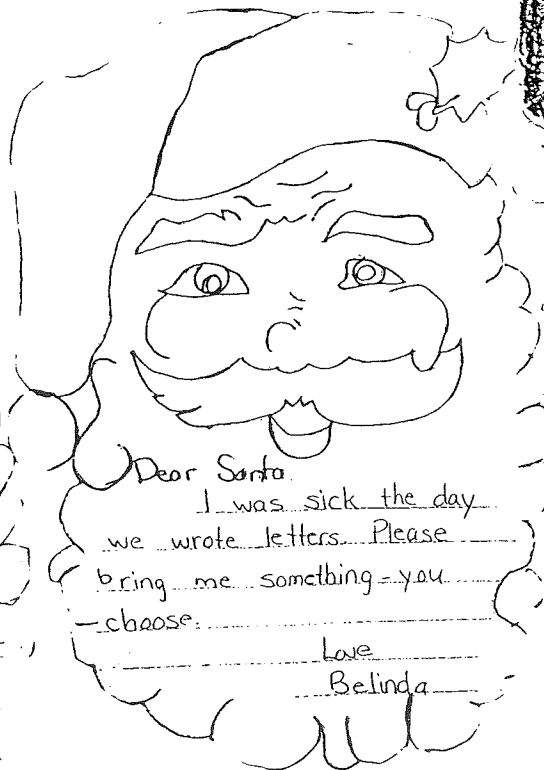 Dear Santa.
I was sick the day
we wrote letters. Please
bring me something - you
choose.
Love
Belinda